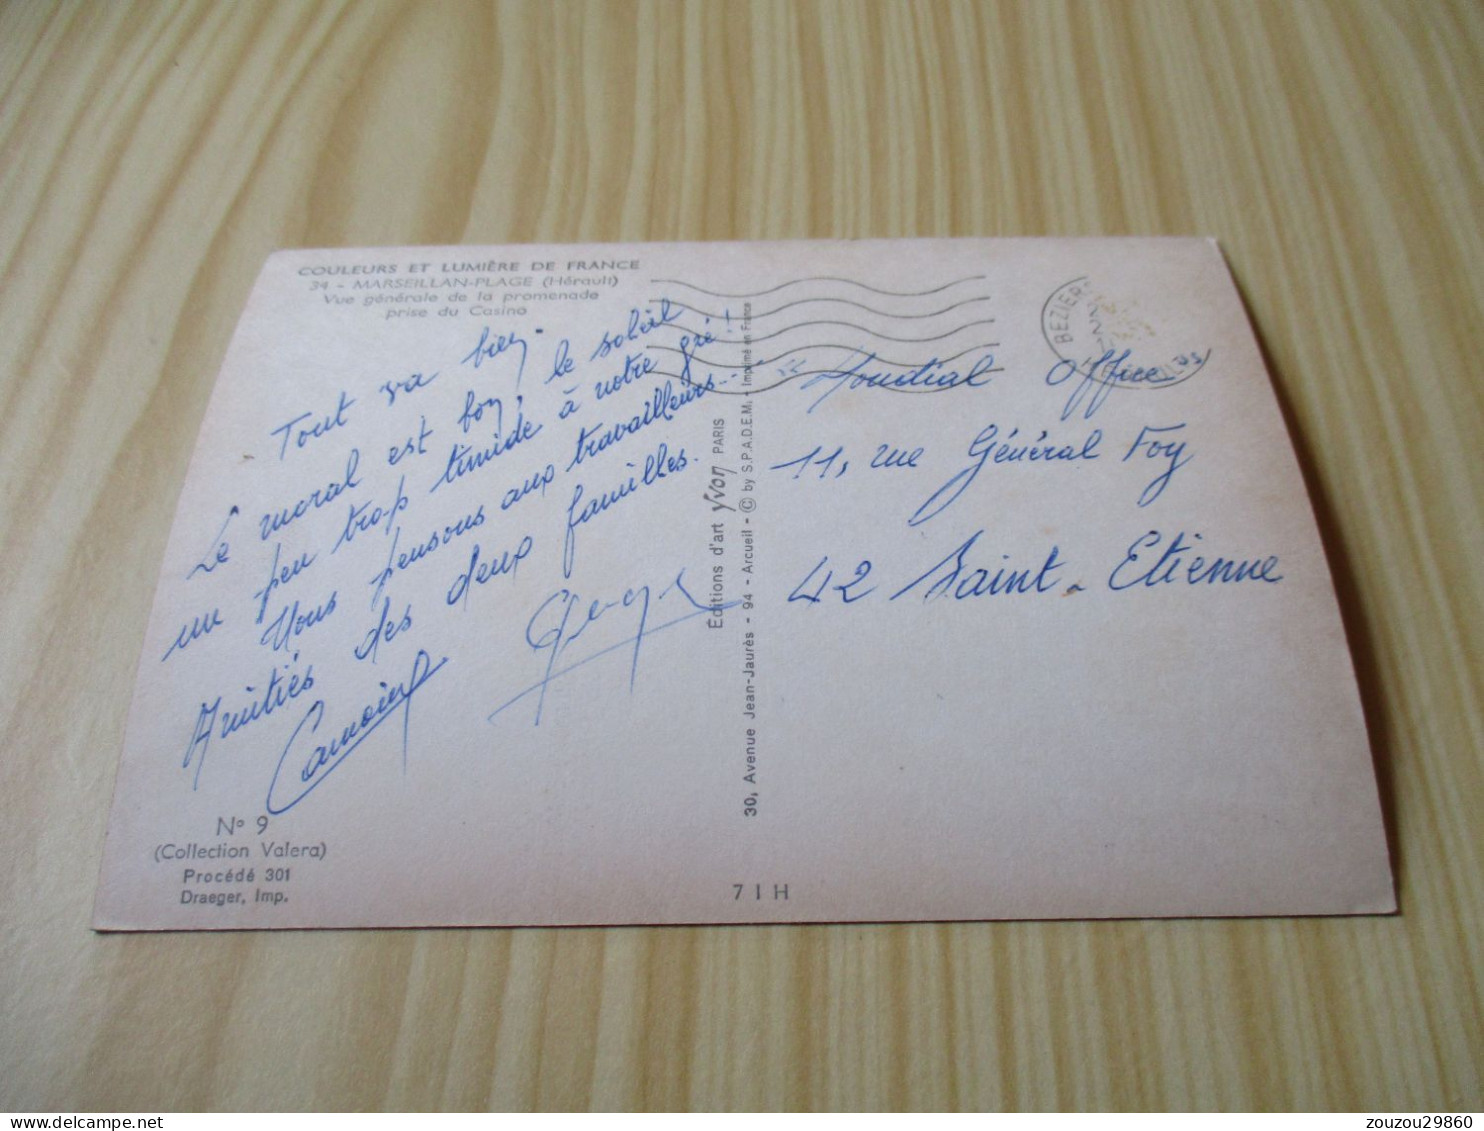 COULEURS ET LUMIÈRE DE FRANCE
34 - MARSEILLAN-PLAGE (Hérault)
Vue générale de la promenade
prise du Casino
Tout va bien.
Le moral est bon, le soleil
un peu trop timide à notre gré!!
Nous pensons aux travailleurs...
Amitiés des deux familles.
Nº 9
(Collection Valera)
Procédé 301
Draeger, Imp.
Éditions d'art Yvon PARIS
30, Avenue Jean-Jaurès - 94 - Arcueil - © by S.P.A.D.E.M. - Imprimé en France
7 I H
BEZIERS
Mondial Office
11, rue Général Foy
42 Saint-Etienne
delcampe.net
zouzou29860